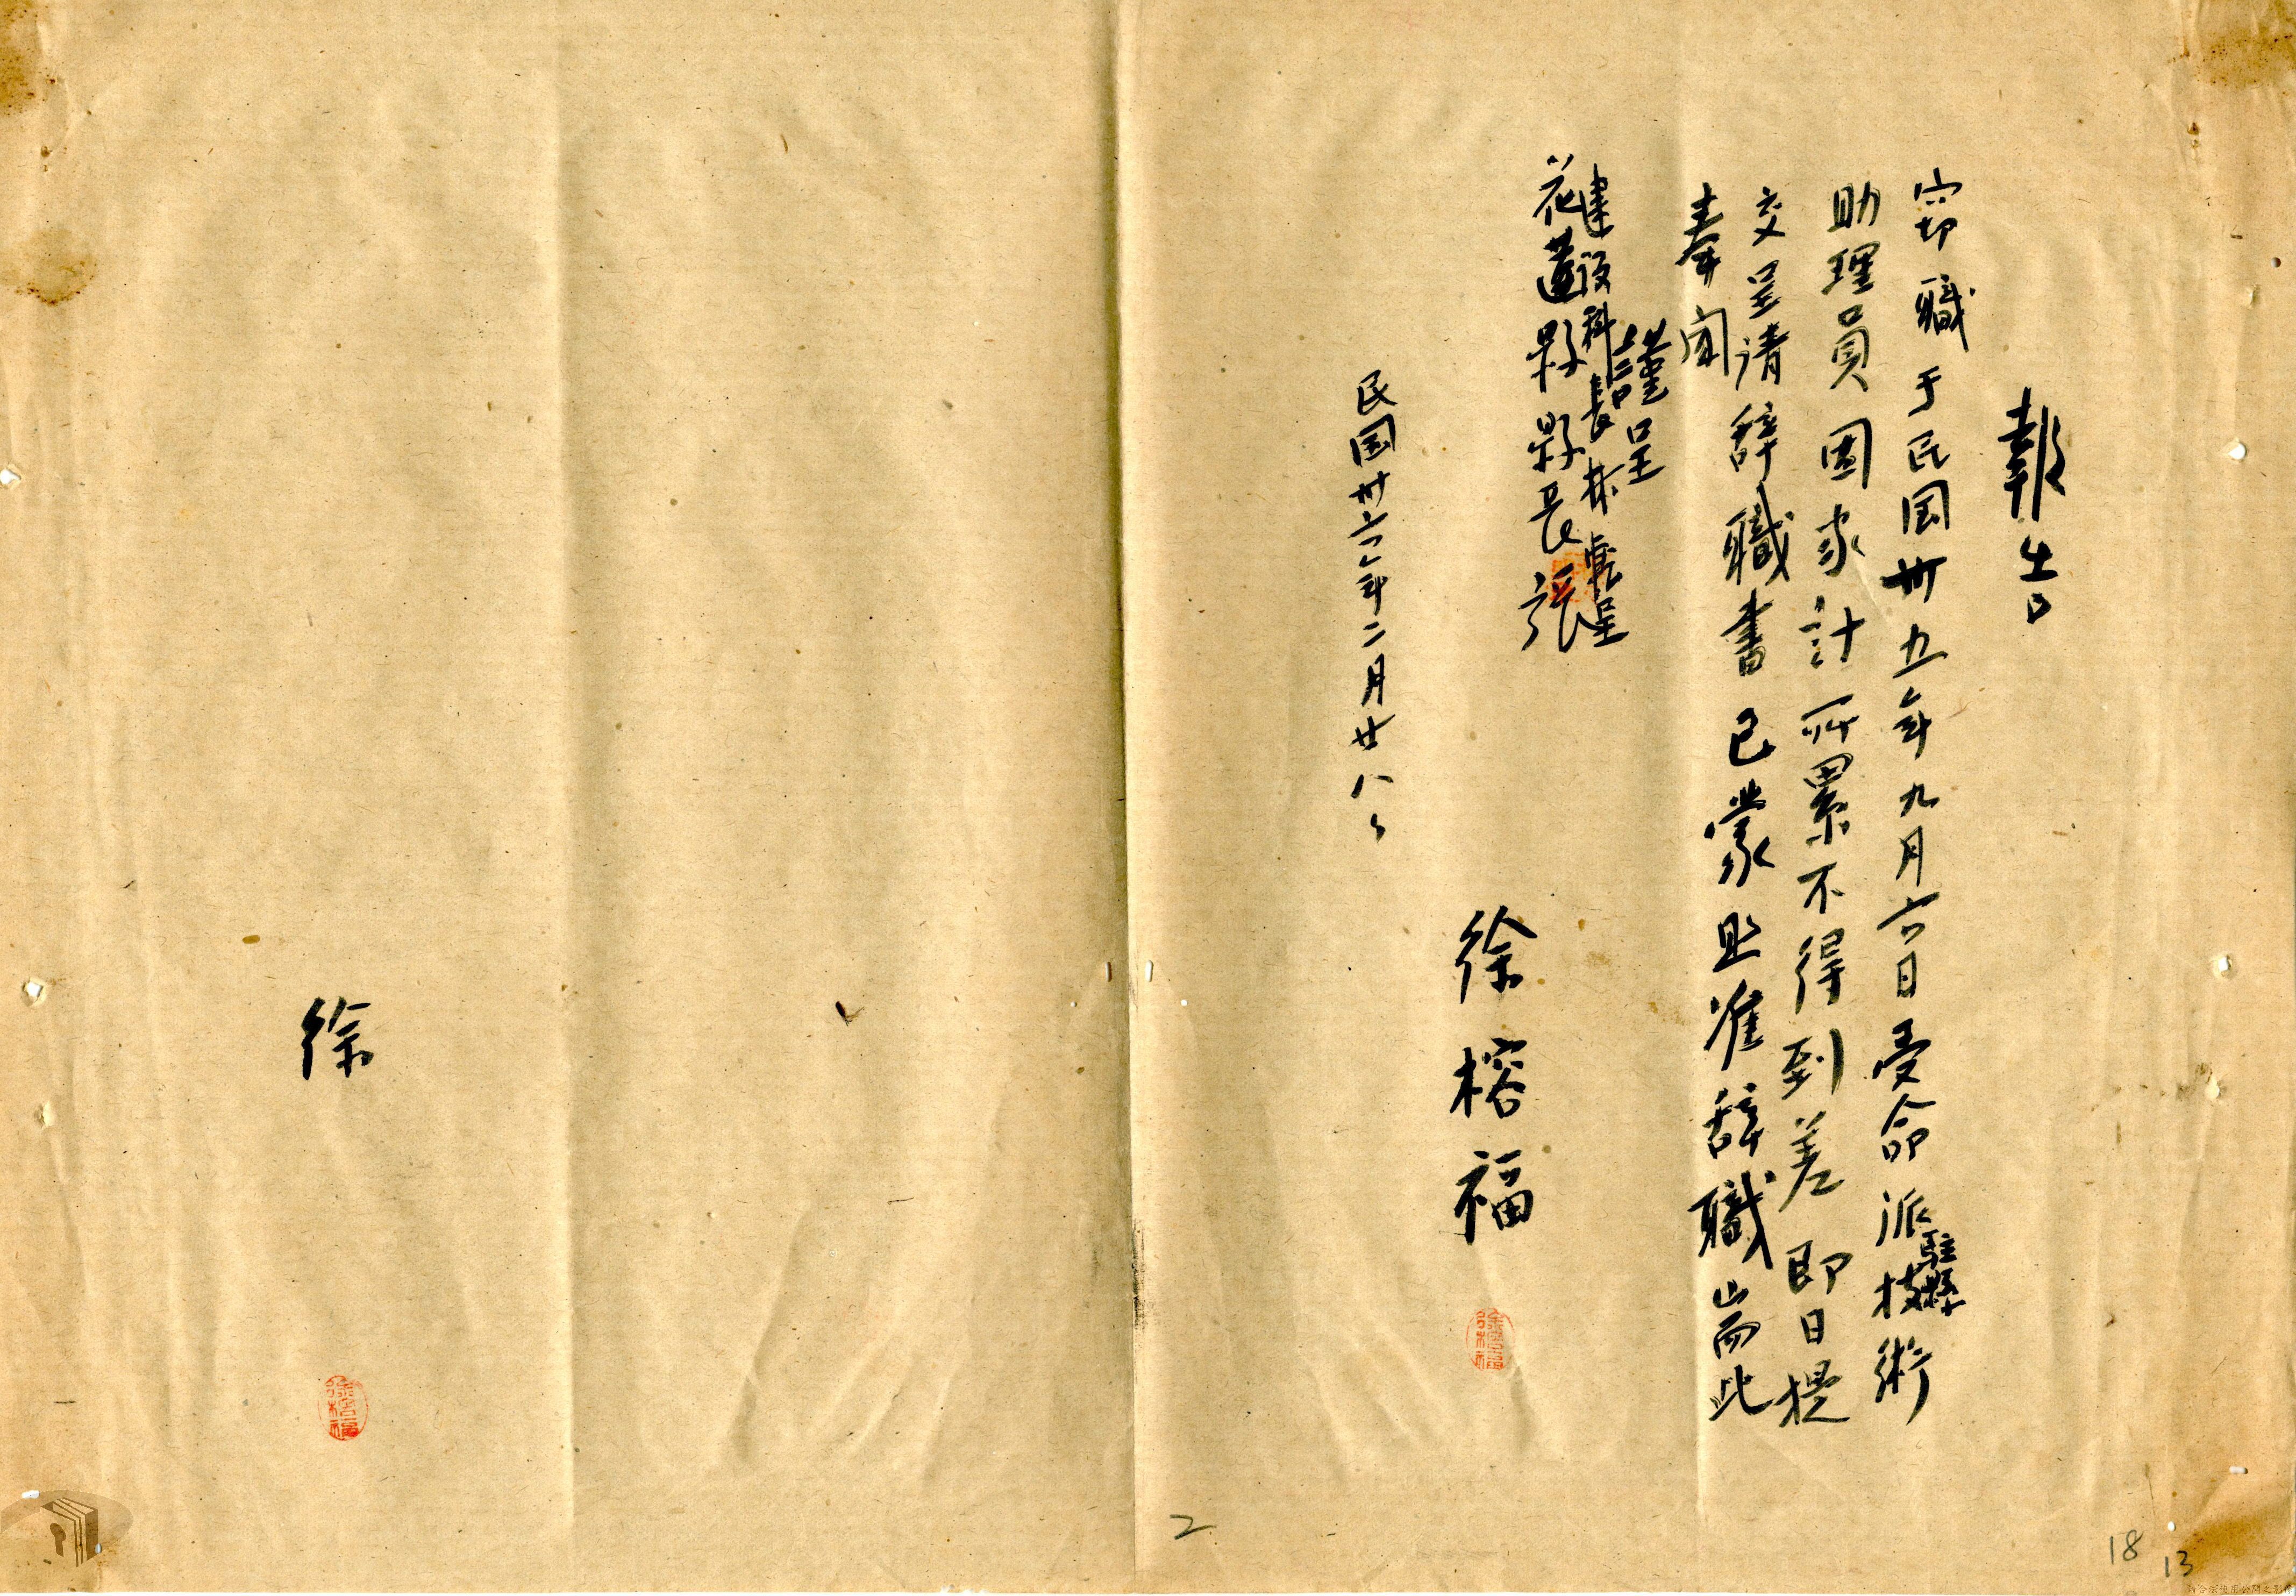 報告
窃職于民国卅五年九月六日受命派駐縣技術
助理員因家計所累不得到差即日提
交呈请辞職書已蒙照准辞職耑此
奉聞
謹呈
建设科長林 轉呈
花蓮縣縣長張
徐榕福
民国卅六年二月廿八
徐
2
18
13